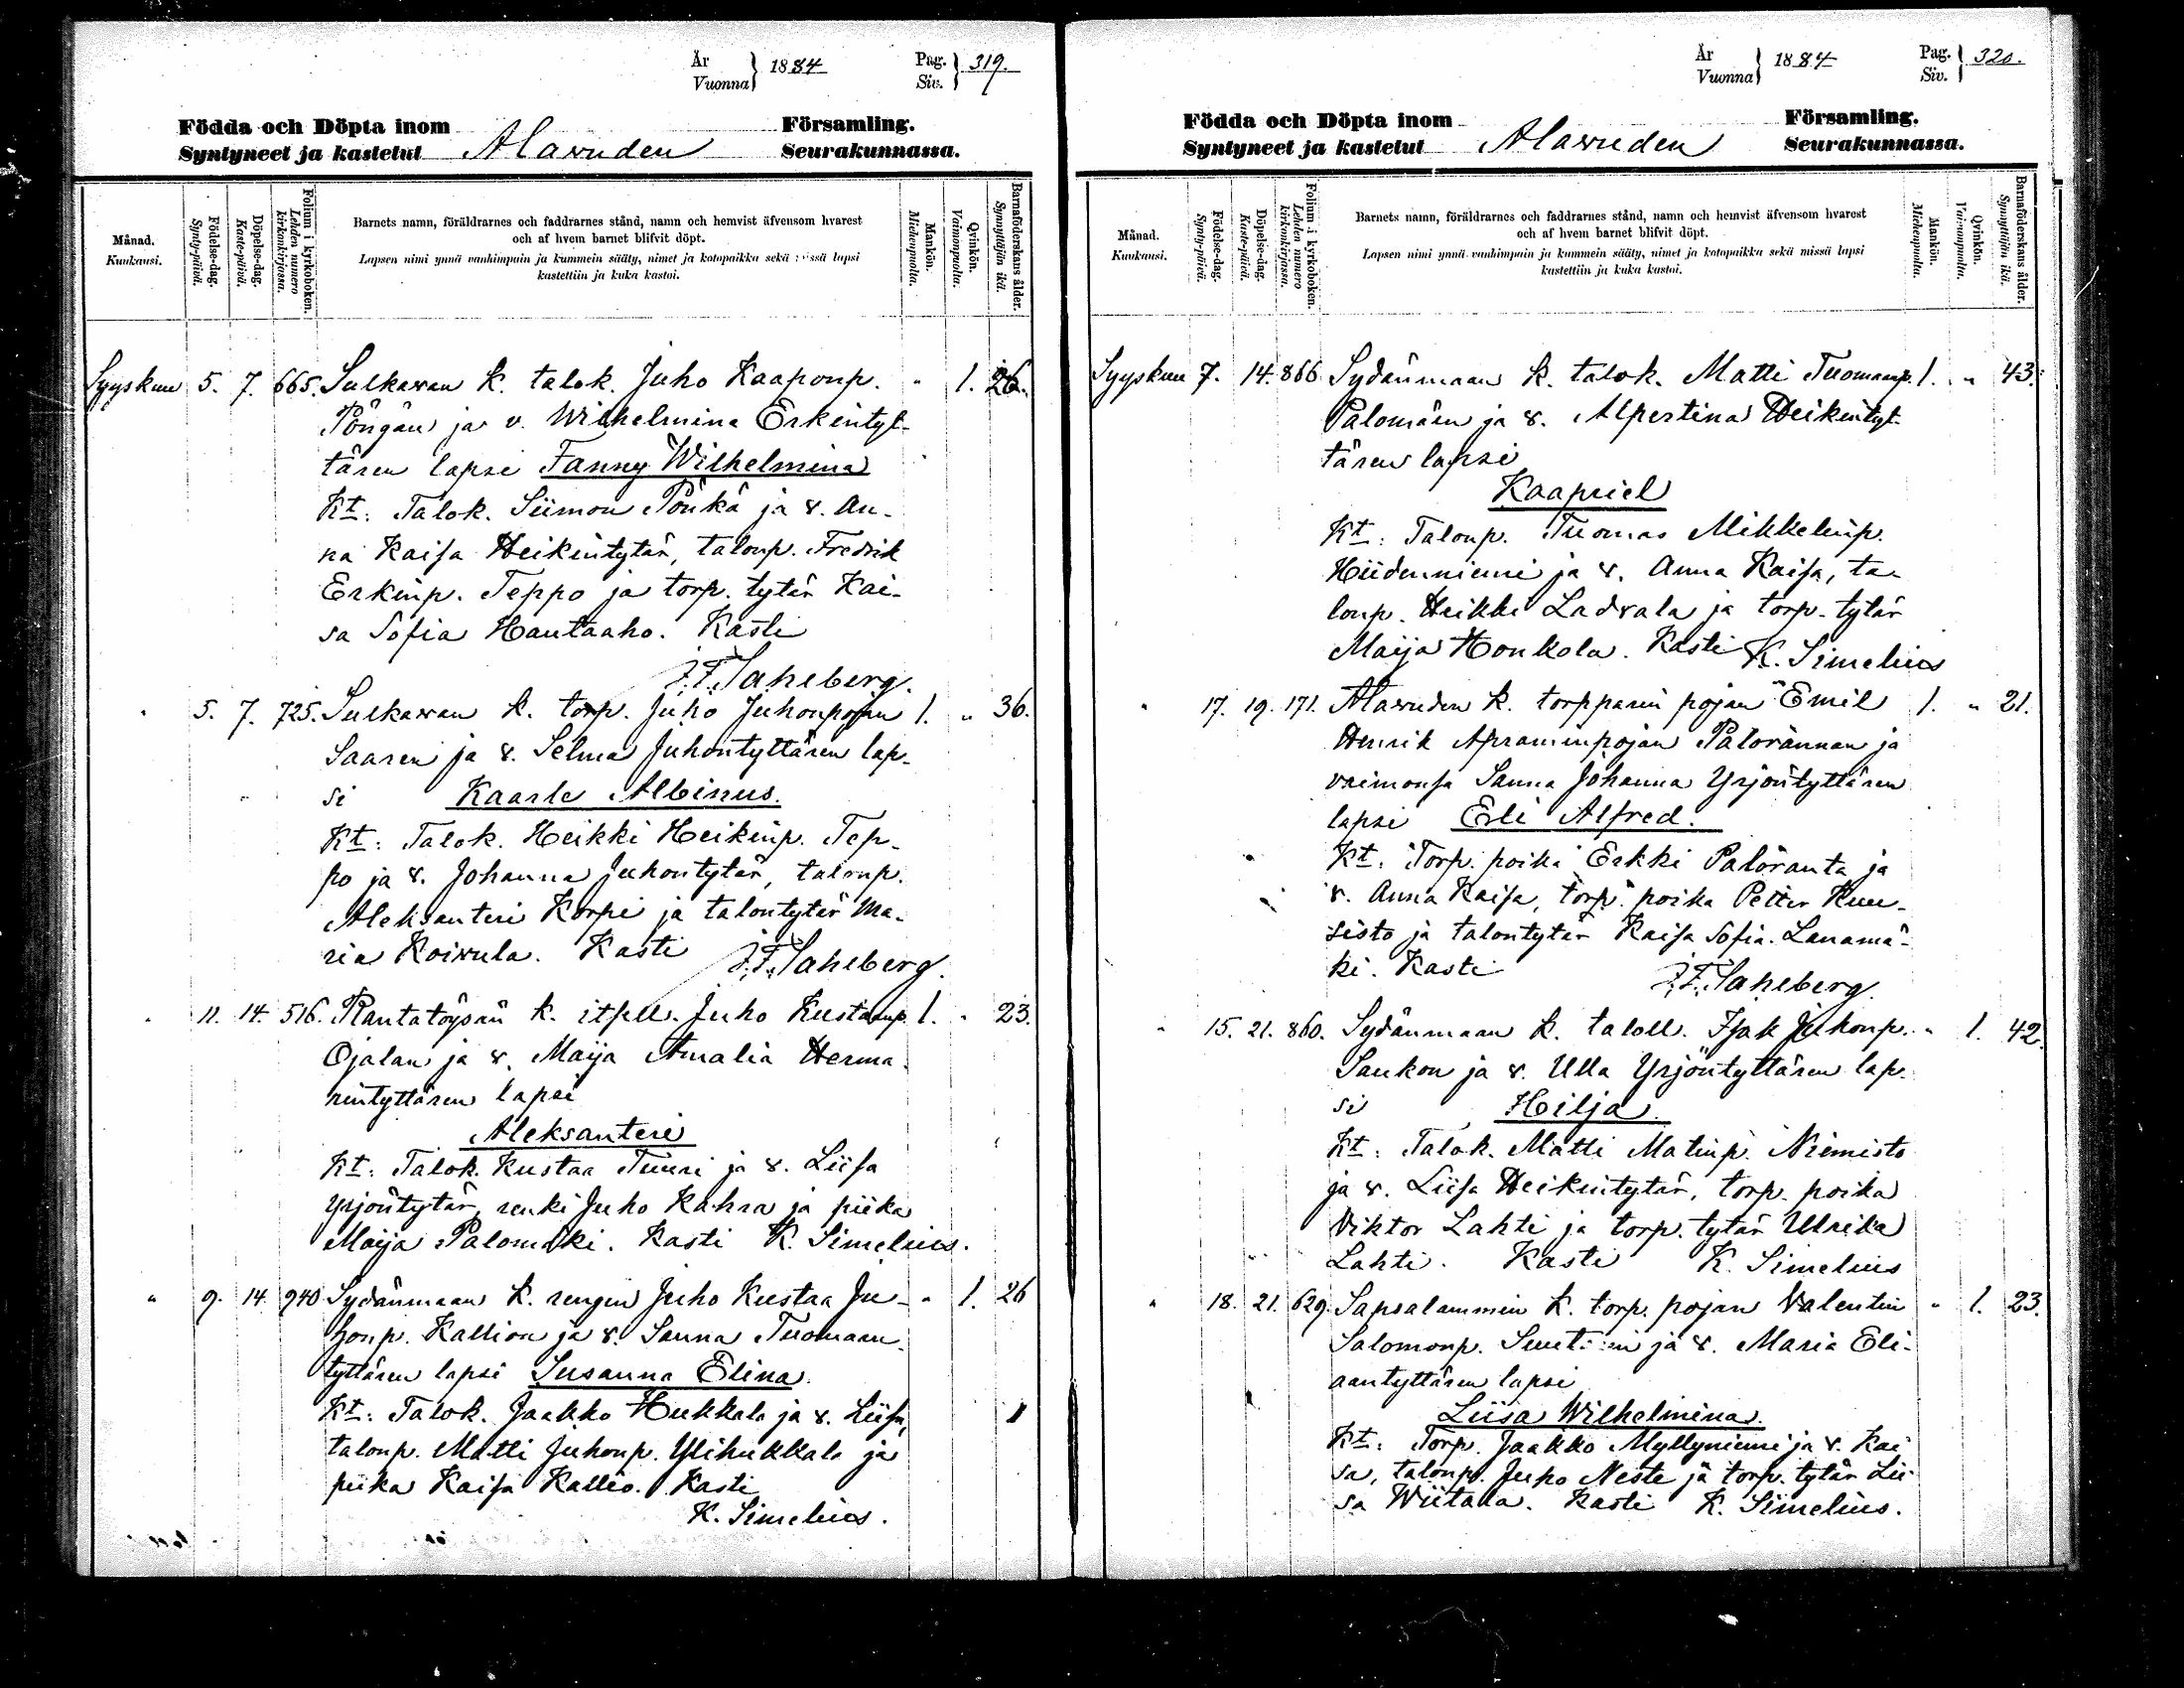 År
Vuonna
1884
Pag.
Siv.
319.
Födda och Döpta inom Församling.
Syntyneet ja kastetut Alawuden Seurakunnassa.
Månad.
Kuukausi.
Födelse-dag.
Synty-päivä.
Döpelse-dag.
Kaste-päivä.
Folium i kyrkoboken.
Lehden numero
kirkonkirjassa.
Barnets namn, föräldrarnes och faddrarnes stånd, namn och hemvist äfvensom hvarest
och af hvem barnet blifvit döpt.
Lapsen nimi ynnä vanhimpain ja kummein sääty, nimet ja kotopaikka sekä missä lapsi
kastettiin ja kuka kastoi.
Mankön.
Miehenpuolta.
Qvinkön.
Vaimonpuolta.
Barnaföderskans ålder.
Synnyttäjän ikä.
Syyskuu 5. 7. 665. Sulkawan k. talok. Juho Kaaponp. " 1. 26.
Pöngän ja v. Wilhelmina Erkintyt-
tären lapsi Fanny Wilhelmina
Kt: Talok. Siimon Pönkä ja v. An-
na Kaisa Heikintytär, talonp. Fredrik
Erkinp. Teppo ja torp. tytär Kai-
sa Sofia Hautaaho. Kasti
J.F. Saheberg.
" 5. 7. 725. Sulkawan k. torp. Juho Juhonpojan 1. " 36.
Saaren ja v. Selma Juhontyttären lap-
si Kaarle Albinus.
Kt: Talok. Heikki Heikinp. Tep-
po ja v. Johanna Juhontytär, talonp.
Aleksanteri Korpi ja talontytär Ma-
ria Koiwula. Kasti J.F. Saheberg.
" 11. 14. 516. Rantatöysän k. itsell. Juho Kustaanp. 1. " 23.
Ojalan ja v. Maija Amalia Herma-
nintyttären lapsi
Aleksanteri
Kt: Talok. Kustaa Tuuri ja v. Liisa
Yrjöntytär, renki Juho Kahra ja piika
Maija Palomäki. Kasti K. Simelius.
" 9. 14. 940 Sydänmaan k. rengin Juho Kustaa Ju- " 1. 26
honp. Kallion ja v. Sanna Tuomaan-
tyttären lapsi Susanna Elina.
Kt: Talok. Jaakko Hukkala ja v. Liisa,
talonp. Matti Juhonp. Ylihukkala ja
piika Kaisa Kallio. Kasti
K. Simelius.
År
Vuonna
1884
Pag.
Siv.
320.
Födda och Döpta inom Församling.
Syntyneet ja kastetut Alawuden Seurakunnassa.
Månad.
Kuukausi.
Födelse-dag.
Synty-päivä.
Döpelse-dag.
Kaste-päivä.
Folium i kyrkoboken.
Lehden numero
kirkonkirjassa.
Barnets namn, föräldrarnes och faddrarnes stånd, namn och hemvist äfvensom hvarest
och af hvem barnet blifvit döpt.
Lapsen nimi ynnä vanhimpain ja kummein sääty, nimet ja kotopaikka sekä missä lapsi
kastettiin ja kuka kastoi.
Mankön.
Miehenpuolta.
Qvinkön.
Vaimonpuolta.
Barnaföderskans ålder.
Synnyttäjän ikä.
Syyskuu 7. 14. 866 Sydänmaan k. talok. Matti Tuomaanp. 1. " 43.
Palomäen ja v. Alpertina Heikintyt-
tären lapsi
Kaapriel
Kt: Talonp. Tuomas Mikkelinp.
Hiidenniemi ja v. Anna Kaisa, ta-
lonp. Heikki Ladvala ja torp. tytär
Maija Honkola. Kasti K. Simelius
" 17. 19. 171. Alawuden k. torpparin pojan Emil 1. " 21.
Henrik Apraminpojan Palorannan ja
vaimonsa Sanna Johanna Yrjöntyttären
lapsi Eeli Alfred.
Kt: Torp. poika Erkki Paloranta ja
v. Anna Kaisa, torp. poika Petter Kuu-
sisto ja talontytär Kaisa Sofia Lanamä-
ki. Kasti J.F. Saheberg.
" 15. 21. 860. Sydänmaan k. taloll. Isak Juhonp. " 1. 42.
Saukon ja v. Ulla Yrjöntyttären lap-
si Hilja.
Kt: Talok. Matti Matinp. Niemistö
ja v. Liisa Heikintytär, torp. poika
Viktor Lahti ja torp. tytär Ulrika
Lahti. Kasti K. Simelius
" 18. 21. 629. Sapsalammin k. torp. pojan Valentin " 1. 23.
Salomonp. ja v. Maria Eli-
aantyttären lapsi
Liisa Wilhelmina.
Kt: Torp. Jaakko Myllyniemi ja v. Kai
sa, talonp. Juho Neste ja torp. tytär Lii-
sa Wiitala. Kasti K. Simelius.